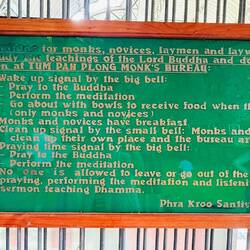 for monks, novices, laymen and layw
the teachings of the Lord Buddha and de
n at TUM PAH PLONG MONK'S BUREAU:
Wake up signal by the big bell:
- Pray to the Buddha
- Perform the meditation
- Go about with bowls to receive food when it
(only monks and novices)
Monks and novices have breakfast
Clean up signal by the small bell: Monks and
clean up their own place and the bureau ar
Praying time signal by the big bell:
- Pray to the Buddha
- Perform the meditation
No one is allowed to leave or go out of the
praying, performing the meditation and listeni
sermon teaching Dhamma.
Phra Kroo Santiv